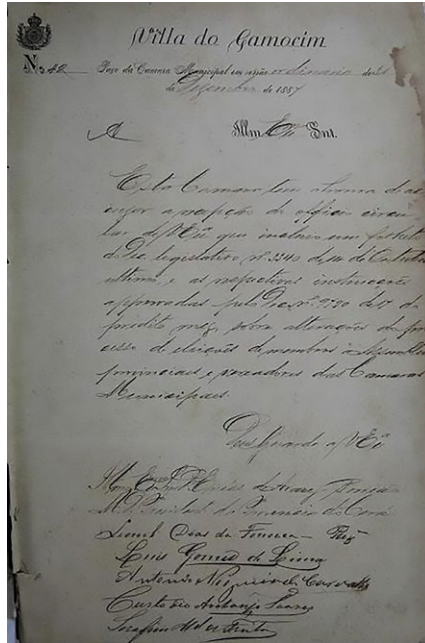 Villa do Camocim
N. 42 Paço da Camara Municipal em sessão ordinaria de 21
de Dezembro de 1887
Illm Exm Snr.
Esta Camara tem a honra de ac
cusar a recepção do officio circu
lar de V. Exª que incluiu um folheto
do Dec. legislativo nº 3340 de 14 de Outubro
ultimo, e as respectivas instrucções
approvadas pelo Dec. nº 9790 de 17 do
predito mez, sobre alterações do pro
cesso de eleições de membros á Assembleas
provinciaes e vereadores das Camaras
Municipaes.
Deus Guarde a V. Exª
Illm Exm Snr. Enéas de Araujo Torreão
M. D. Presidente da Provincia do Ceará
Leonel Dias da Fonseca
Luis Gomes de Lima
Antonio de Carvalho
Custodio Antonio
Serafim